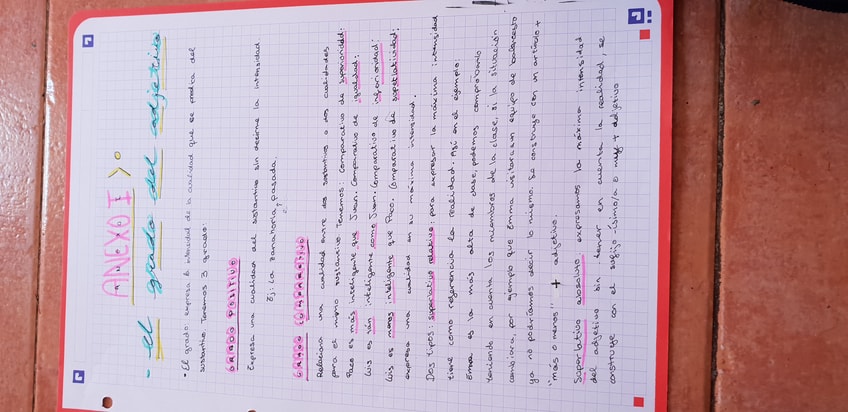 ANEXO I
- El grado del adjetivo
- El grado: expresa la intensidad de la cualidad que se predica del
sustantivo. Tenemos 3 grados:
GRADO POSITIVO
Expresa una cualidad del sustantivo sin decirme la intensidad
Ej: La zanahoria pasada
GRADO COMPARATIVO
Relaciona una cualidad entre dos sustantivos o dos cualidades
para el mismo sustantivo. Tenemos: comparativo de superioridad:
Paco es más inteligente que Juan. Comparativo de igualdad:
Luis es tan inteligente como Juan. Comparativo de inferioridad:
Luis es menos inteligente que Paco. Comparativo de superlatividad:
expresa una cualidad en su máxima intensidad.
Dos tipos: superlativo relativo: para expresar la máxima intensidad
tiene como referencia la realidad. Así en el ejemplo
Emma es la más alta de clase, podemos comprobarlo
teniendo en cuenta los miembros de la clase, si la situación
cambiara, por ejemplo que Emma visitara un equipo de baloncesto
ya no podríamos decir lo mismo. Se construye con un artículo +
"más o menos" + adjetivo.
Superlativo absoluto: expresamos la máxima intensidad
del adjetivo sin tener en cuenta la realidad, se
construye con el sufijo -ísimo/a o muy + adjetivo